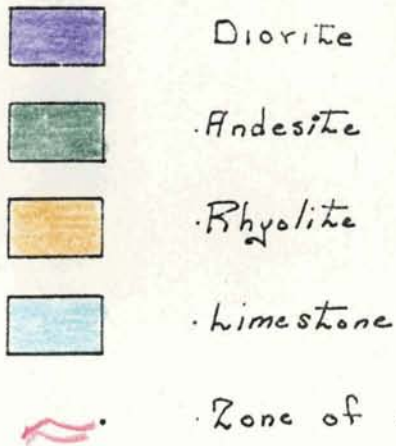 Diorite
Andesite
Rhyolite
Limestone
Zone of